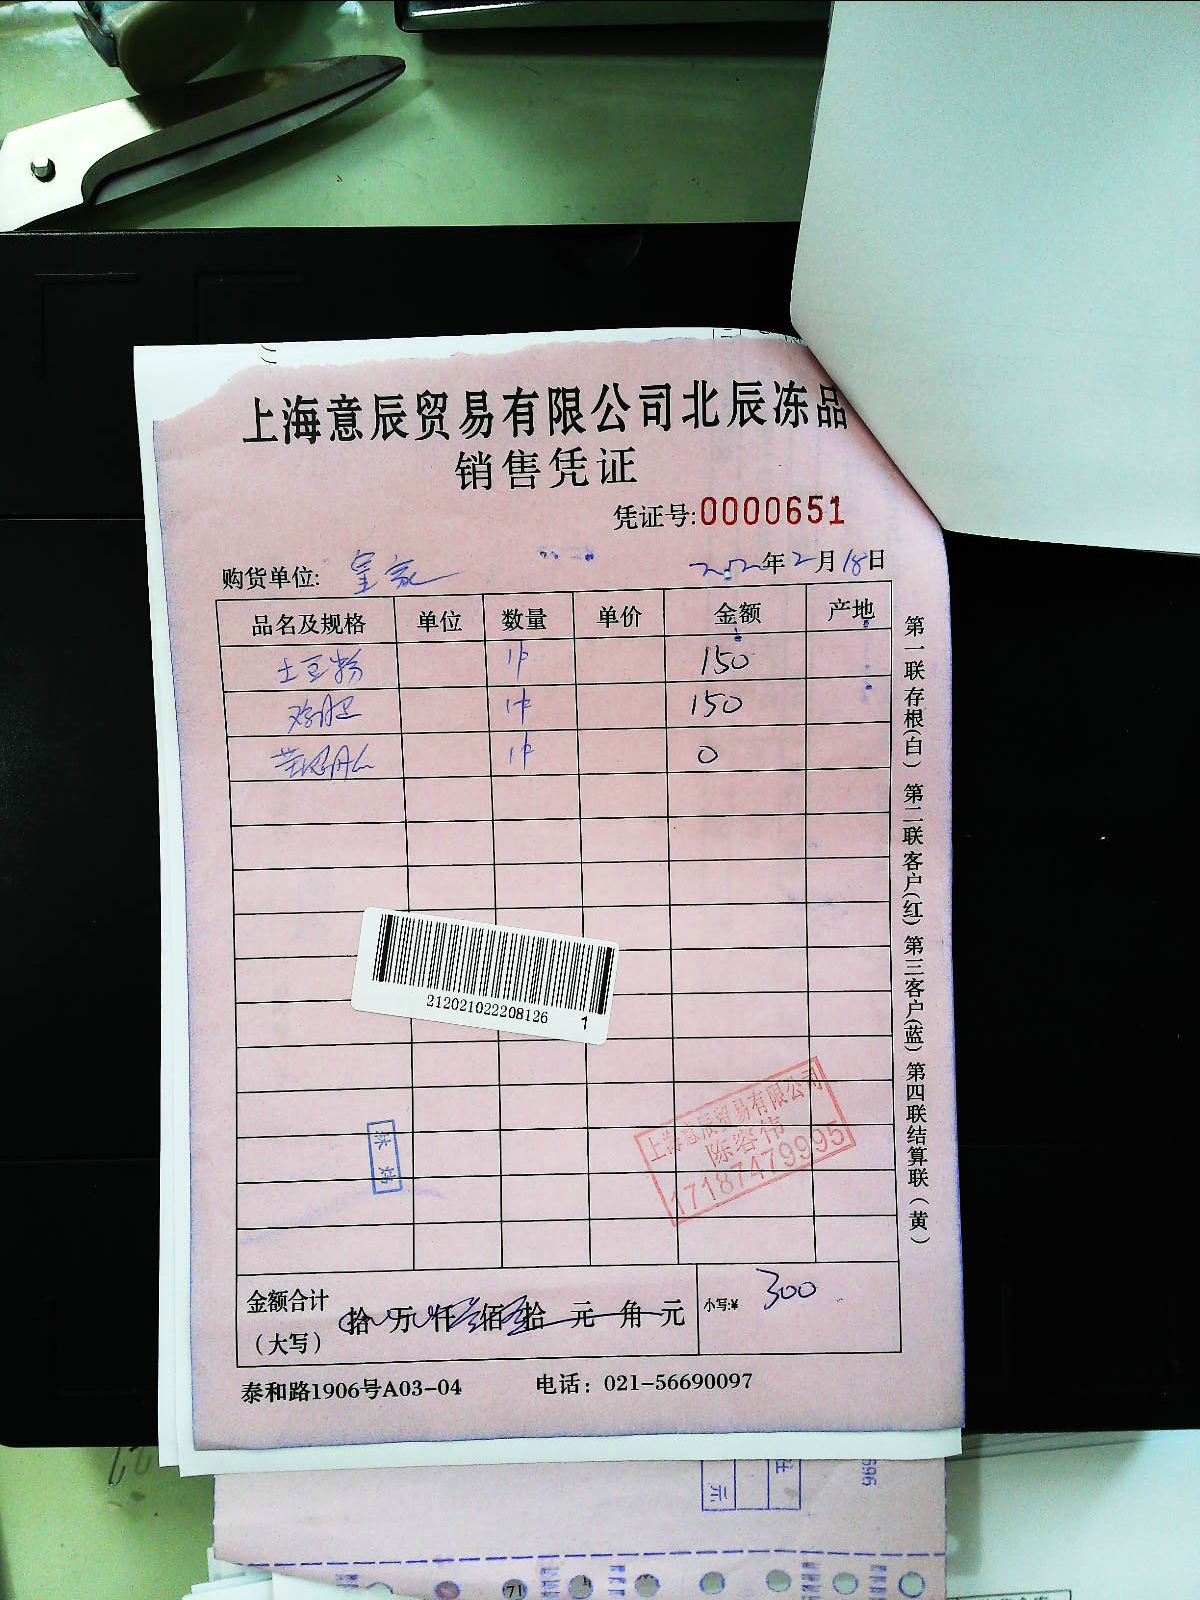 上海意辰贸易有限公司北辰冻品
销售凭证
凭证号:0000651
购货单位: 皇家 年2月18日
品名及规格 单位 数量 单价 金额 产地
土豆粉 1件 150
鸡腿 1件 150
1件 0
212021022208126 1
上海意辰贸易有限公司
陈容伟
17187479995
金额合计
(大写) 拾 万 仟 佰 拾 元 角 元 小写:¥ 300
泰和路1906号A03-04 电话: 021-56690097
第一联存根(白) 第二联客户(红) 第三客户(蓝) 第四联结算联(黄)